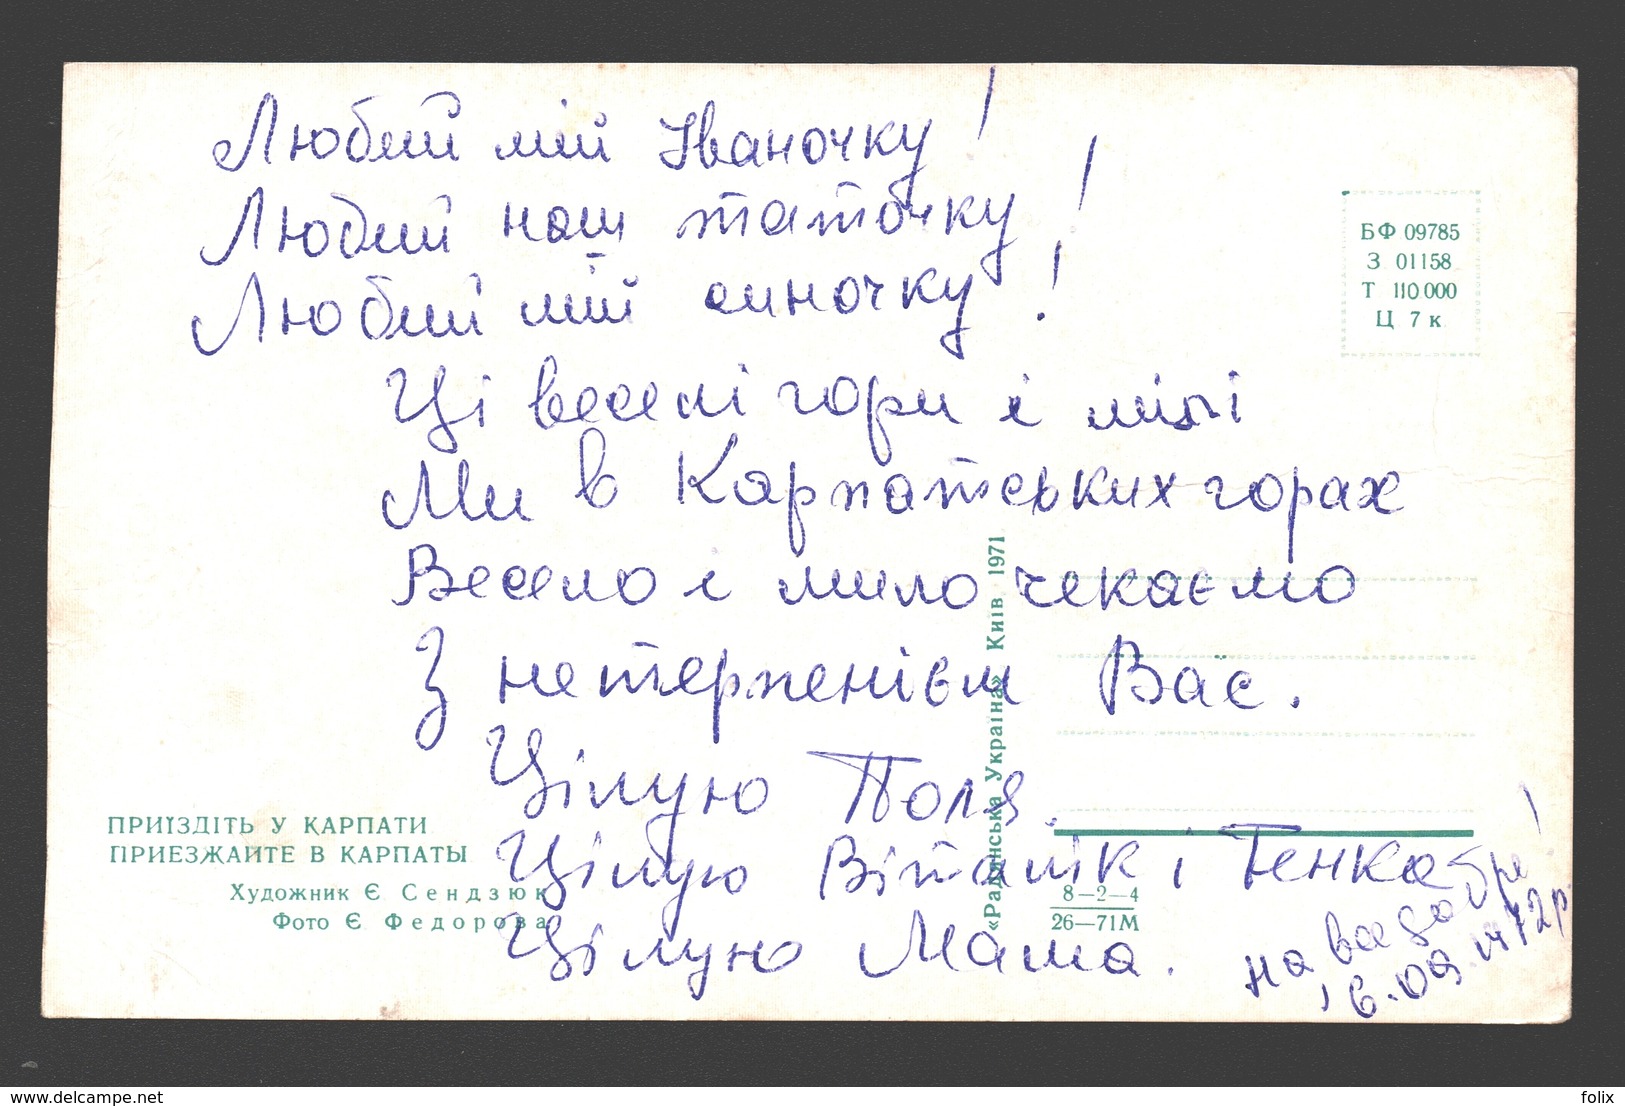 Любий мій Іваночку!
Любий наш таточку!
Любий мій синочку!
Ці веселі гори і милі
Ми в Карпатських горах
Весело і мило чекаємо
З нетерпенієм Вас.
Цілую Поля.
Цілую Віталік і Генка
Цілую Мама.
на все добре!
16.09.1972р
БФ 09785
З 01158
Т 110 000
Ц 7 к
«Радянська Україна» Київ 1971
ПРИЇЗДІТЬ У КАРПАТИ
ПРИЕЗЖАЙТЕ В КАРПАТЫ
Художник Є Сендзюк
Фото Є Федорова
8—2—4
26—71М
www.delcampe.net
folix